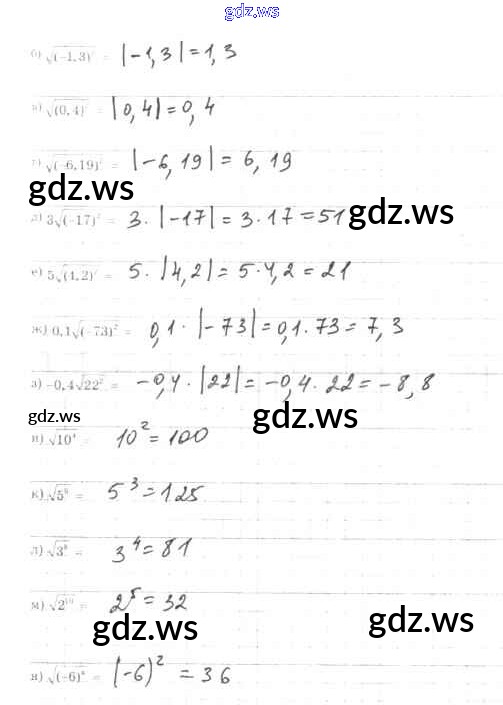 gdz.ws
б) √(−1,3)² = |−1,3| = 1,3
в) √(0,4)² = |0,4| = 0,4
г) √(−6,19)² = |−6,19| = 6,19
gdz.ws
д) 3√(−17)² = 3·|−17| = 3·17 = 51
gdz.ws
е) 5√(4,2)² = 5·|4,2| = 5·4,2 = 21
ж) 0,1√(−73)² = 0,1·|−73| = 0,1·73 = 7,3
з) −0,4√22² = −0,4·|22| = −0,4·22 = −8,8
gdz.ws
gdz.ws
и) √10⁴ = 10² = 100
к) √5⁶ = 5³ = 125
л) √3⁸ = 3⁴ = 81
м) √2¹⁰ = 2⁵ = 32
gdz.ws
gdz.ws
н) √(−6)⁴ = (−6)² = 36